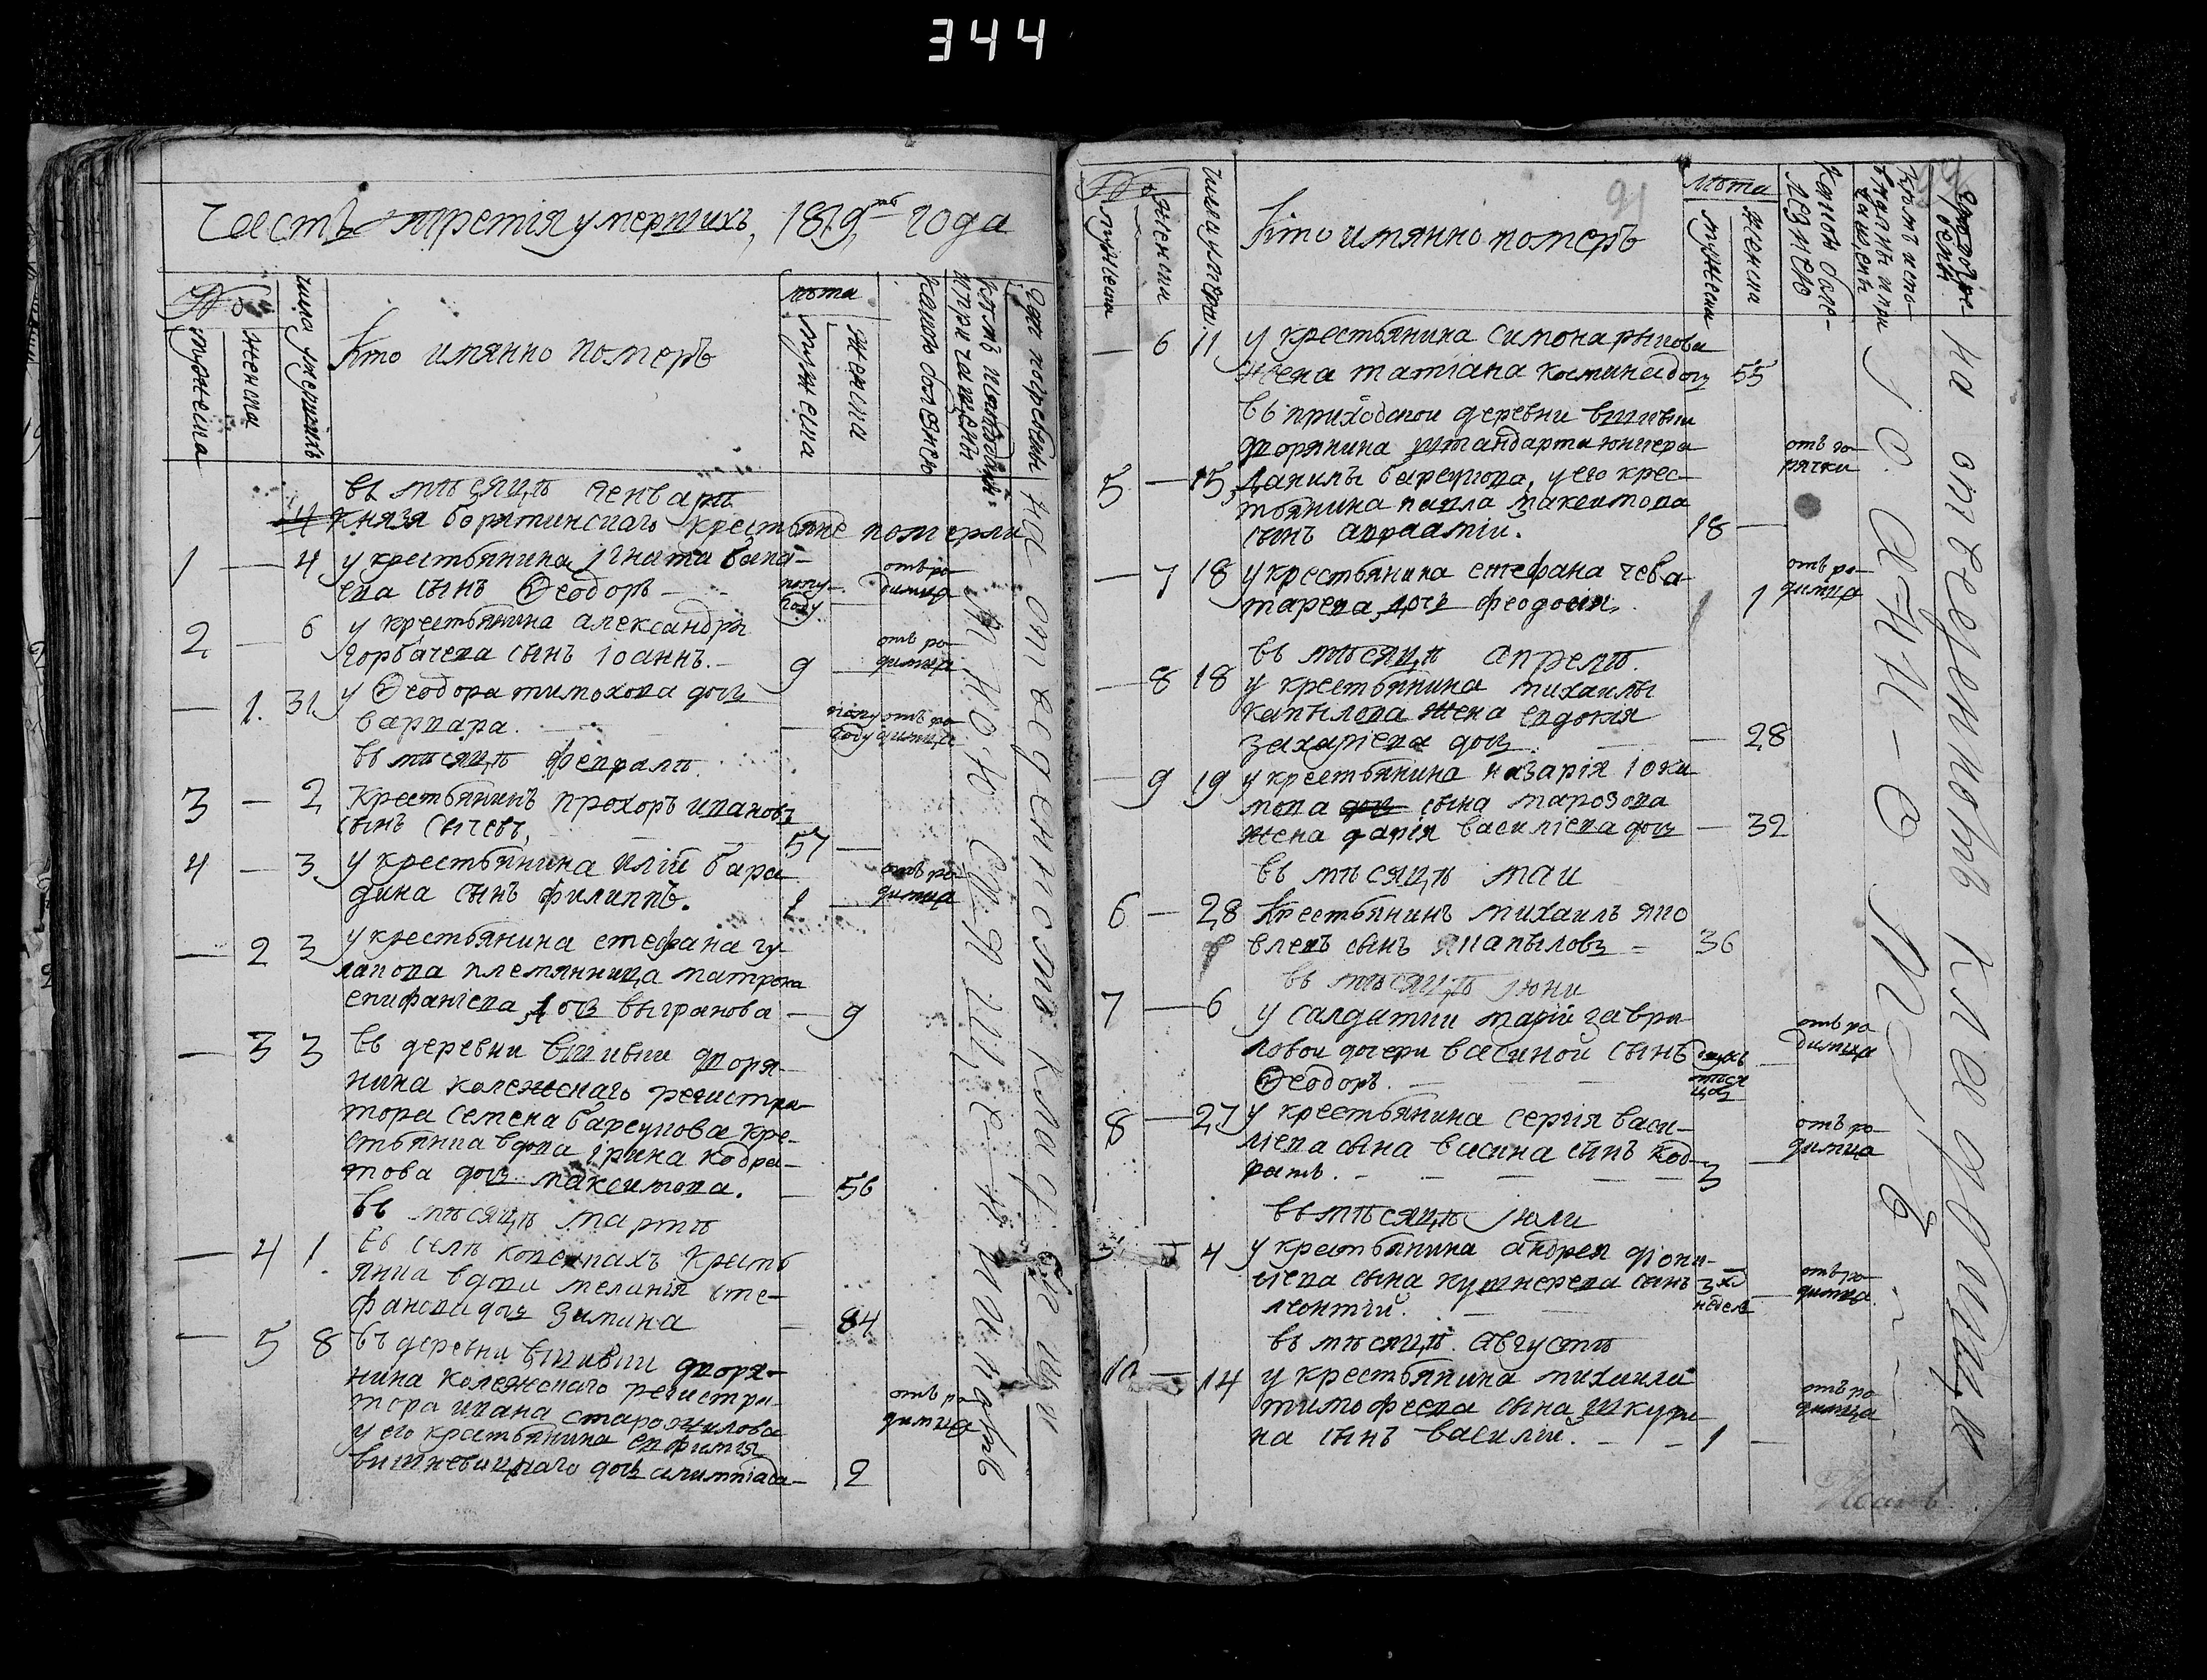 344
Часть третія умершихъ, 1819го года
№
мужеска
женска
числа умершихъ
Кто имянно померъ
лѣта
мужеска
женска
какою болѣзнею
гдѣ погребены
въ мѣсяцѣ генварѣ
4 Князя борятинскаго крестьяне померли
1 — 4 у крестьянина игната бана-
ева сынъ Ѳеодоръ — полу году — отъ родимца
2 — 6 у крестьянина александра
горбачева сынъ Iоаннъ. — 9 — отъ родимца
— 1. 31 у Ѳеодора тимохова дочь
варвара. — полугоду отъ родимца
въ мѣсяцѣ февралѣ.
3 — 2 Крестьянинъ прохоръ ивановъ
сынъ сычевъ, 57 —
4 — 3 у крестьянина илiи бара
дина сынъ филиппъ. 1 — отъ родимца
— 2 3 у крестьянина стефана гу-
лапова племянница матрона
епифанiева дочь выгранова — 9
— 3 3 въ деревни вшивки дворя-
нина колежскаго регистра
тора семена барсукова кре-
стьянка вдова iрина кодра-
това дочь максимова. — 56
въ мѣсяцѣ мартѣ
— 4 1. въ селѣ копенкахъ Кресть
янка вдова меланiя сте-
фанова дочь Зимина — 84
— 5 8 въ деревни вшивки дворя-
нина колежскаго регистра-
тора ивана старожилова
у его крестьянина евфимiя
вишневицкаго дочь олимпiада — 2 отъ родимца
на отведенномъ кладбищи
iоаннъ священникъ
91
№
мужеска
женска
числа умерш.
Кто имянно померъ
лѣта
мужеска
женска
какою боле-
лѣзнею
кѣмъ испо-
вѣданы и при
чащены
— 6 11 у крестьянина симона рыкова
жена татiана космина дочь 55
въ приходской деревни вшивки
дворянина штандартъ юнкера
5 — 15 Данилы барсукова, у его крес-
тьянина павла максимова
сынъ авраамiй. 18 — отъ горячки
— 7 18 у крестьянина стефана чева
тарева дочь феодосiя, 1 отъ родимца
въ мѣсяцѣ апрелѣ.
— 8 18 у крестьянина михаилы
капылова жена евдокiя
захарiева дочь. — 28
— 9 19 у крестьянина назарiя iоки
мова сына марозова
жена дарiя василiева дочь — 32
въ мѣсяцѣ маи
6 — 28 Крестьянинъ михаилъ яко
влевъ сынъ капыловъ — 36
въ мѣсяцѣ iюни
7 — 6 у салдатки марiи гаври
ловой дочери васиной сынъ
Ѳеодоръ. — отъ родимца
8 — 27 у крестьянина сергiя васи-
лiева сына васина сынъ код-
ратъ. — 3 — отъ родимца
въ мѣсяцѣ iюли
4 у крестьянина андрея дiони-
сiева сына кушнерева сынъ 3х недель
леонтiй. — отъ родимца
въ мѣсяцѣ. августѣ
10 — 14 у крестьянина михаила
тимофеева сына шкури
на сынъ василiй. — 1 — отъ родимца
на отведенномъ кладбищи